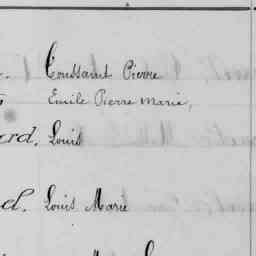 Toussaint Pierre
Emile Pierre Marie,
rd. Louis
d. Louis Marie